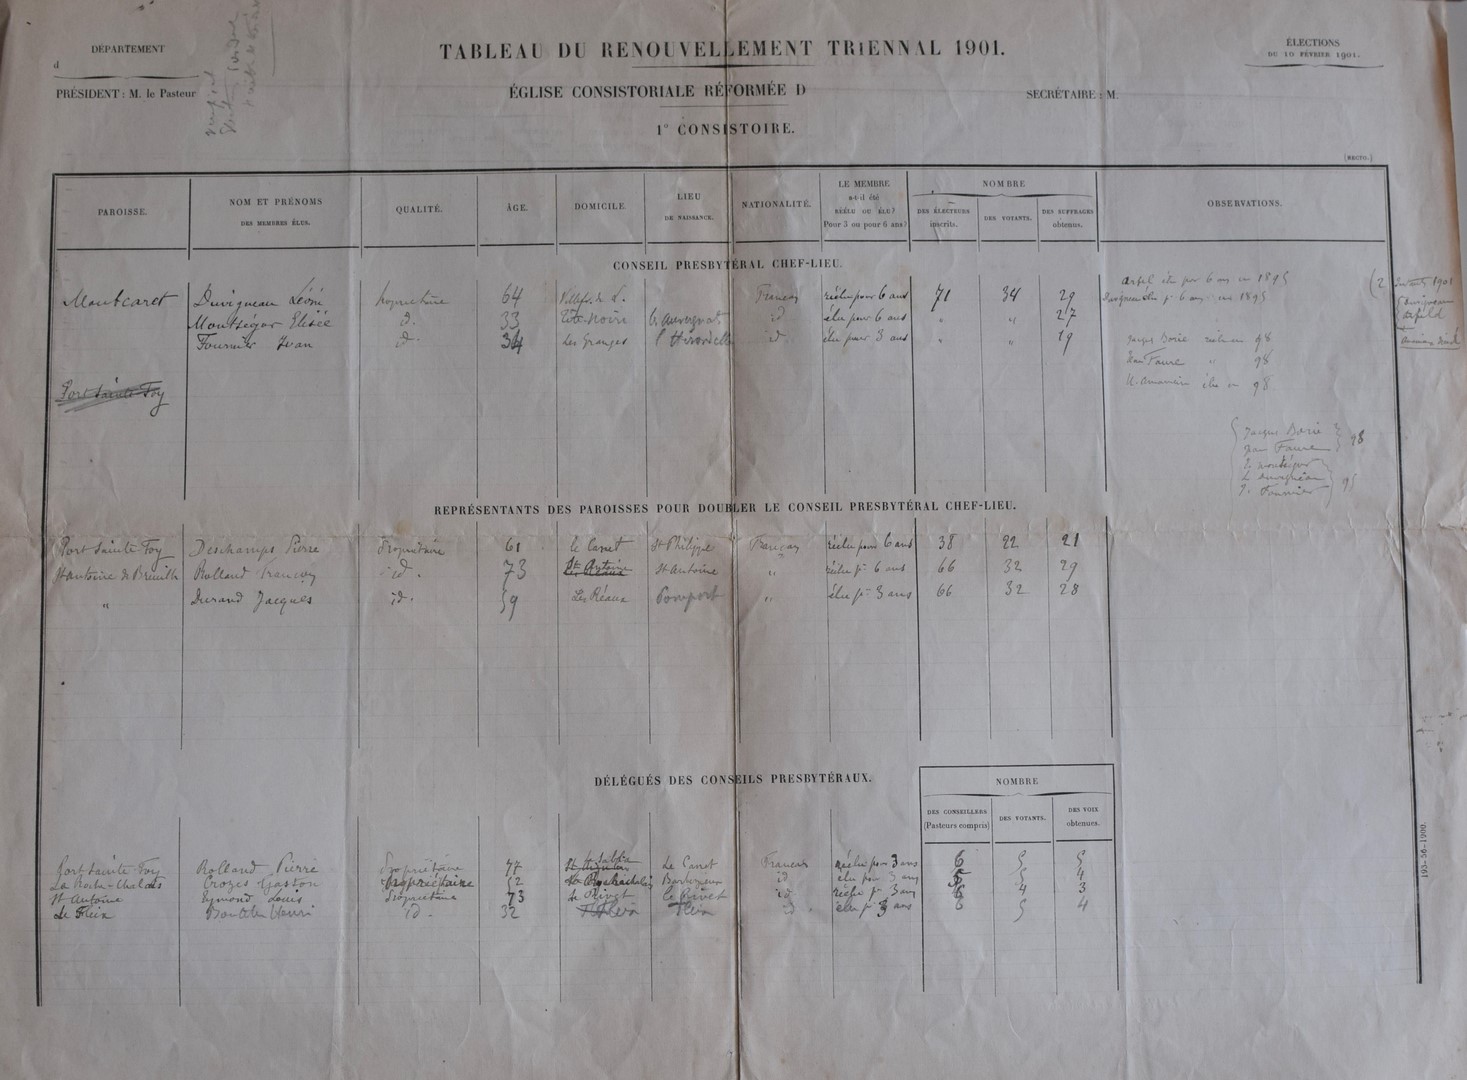 DÉPARTEMENT
d
TABLEAU DU RENOUVELLEMENT TRIENNAL 1901.
ÉLECTIONS
DU 10 FÉVRIER 1901.
PRÉSIDENT : M. le Pasteur
ÉGLISE CONSISTORIALE RÉFORMÉE D
SECRÉTAIRE : M.
1° CONSISTOIRE.
(RECTO.)
PAROISSE.
NOM ET PRÉNOMS
DES MEMBRES ÉLUS.
QUALITÉ.
ÂGE.
DOMICILE.
LIEU
DE NAISSANCE.
NATIONALITÉ.
LE MEMBRE
a-t-il été
RÉÉLU OU ÉLU?
Pour 3 ou pour 6 ans?
NOMBRE
DES ÉLECTEURS
inscrits.
DES VOTANTS.
DES SUFFRAGES
obtenus.
OBSERVATIONS.
CONSEIL PRESBYTÉRAL CHEF-LIEU.
Montcaret Duvigneau Léoni propriétaire 64 Français réélu pour 6 ans 71 34 29
Montségur Elisée d. 33 id élu pour 6 ans " " 27
Fournier Ivan d. 34 Les Granges id élu pour 3 ans " " 19
élu pour 6 ans en 1895
Duvigneau élu p 6 ans en 1895
1901
Duvigneau
Jacques Borie réélu en 98
Jean Faure " 98
élu en 98
Port Sainte Foy
Jacques Borie
Jean Faure
98
Montségur
Duvigneau
Fournier
95
REPRÉSENTANTS DES PAROISSES POUR DOUBLER LE CONSEIL PRESBYTÉRAL CHEF-LIEU.
Port Sainte Foy Deschamps Pierre Propriétaire 61 le Canet St Philippe Français réélu pour 6 ans 38 22 21
St Antoine de Breuilh Rolland François id. 73 St Antoine St Antoine " réélu pr 6 ans 66 32 29
" Durand Jacques id. 59 Les Réaux Pomport " élu pr 3 ans 66 32 28
DÉLÉGUÉS DES CONSEILS PRESBYTÉRAUX.
NOMBRE
DES CONSEILLERS
(Pasteurs compris)
DES VOTANTS.
DES VOIX
obtenues.
Port Sainte Foy Rolland Pierre Propriétaire 77 Le Canet Français réélu pour 3 ans 6 5 5
La Roche-Chalais Crozes Gaston propriétaire 52 id élu pour 3 ans 5 4
St Antoine Eymond Louis Propriétaire 73 Le Rivet Le Rivet id réélu p. 3 ans 6 4 3
Le Fleix Henri id. 32 Fleix id. élu p. 3 ans 6 5 4
193-56-1900.